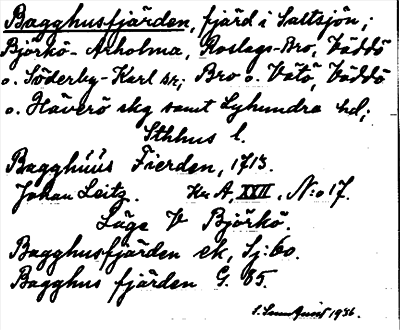 Bagghusfjärden, fjärd i Saltsjön;
Björkö-Arholma, Roslags-Bro, Väddö
o. Söderby-Karl sr; Bro o. Vätö, Väddö
o. Häverö skg samt Lyhundra hd;
Sthlms l.
Bagghúús Fierden, 1713.
Johan Leitz. Kr A, XXII, N:o 17.
Läge V Björkö.
Bagghusfjärden ek, Sj: 60.
Bagghus fjärden G. 85.
1936.